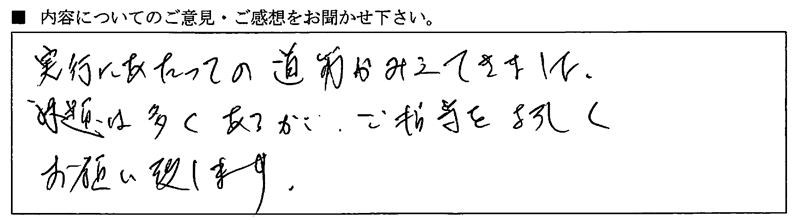 ■ 内容についてのご意見・ご感想をお聞かせ下さい。
実行にあたっての道筋がみえてきました。
課題は多くあるが、ご指導を宜しく
お願い致します。